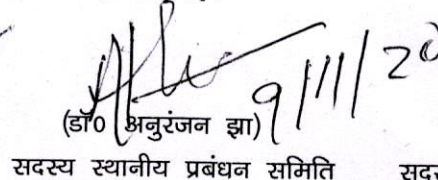 9/11/20
(डॉ0 अनुरंजन झा)
सदस्य स्थानीय प्रबंधन समिति